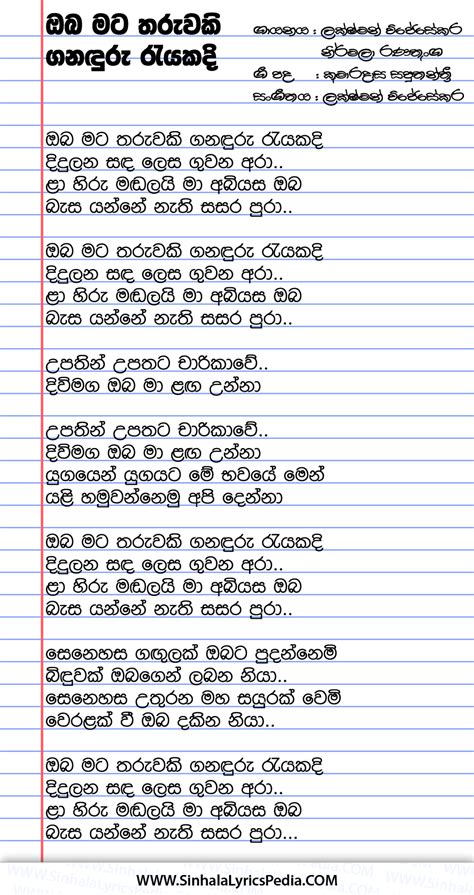 ඔබ මට තරුවකි
ගනඳුරු රැයකදි
ගායනය : ලක්ෂ්මන් විජේසේකර
නිර්මලා රණතුංග
ගී පද : කුමාරදාස සපුතන්ත්‍රී
සංගීතය : ලක්ෂ්මන් විජේසේකර
ඔබ මට තරුවකි ගනඳුරු රැයකදි
දිදුලන සඳ ලෙස ගුවන අරා..
ළා හිරු මඬලයි මා අබියස ඔබ
බැස යන්නේ නැති සසර පුරා..
ඔබ මට තරුවකි ගනඳුරු රැයකදි
දිදුලන සඳ ලෙස ගුවන අරා..
ළා හිරු මඬලයි මා අබියස ඔබ
බැස යන්නේ නැති සසර පුරා..
උපතින් උපතට චාරිකාවේ..
දිවිමග ඔබ මා ළඟ උන්නා
උපතින් උපතට චාරිකාවේ..
දිවිමග ඔබ මා ළඟ උන්නා
යුගයෙන් යුගයට මේ භවයේ මෙන්
යළි හමුවන්නෙමු අපි දෙන්නා
ඔබ මට තරුවකි ගනඳුරු රැයකදි
දිදුලන සඳ ලෙස ගුවන අරා..
ළා හිරු මඬලයි මා අබියස ඔබ
බැස යන්නේ නැති සසර පුරා..
සෙනෙහස ගඟුලක් ඔබට පුදන්නෙමි
බිඳුවක් ඔබගෙන් ලබන නියා..
සෙනෙහස උතුරන මහ සයුරක් වෙමි
වෙරළක් වී ඔබ දකින නියා..
ඔබ මට තරුවකි ගනඳුරු රැයකදි
දිදුලන සඳ ලෙස ගුවන අරා..
ළා හිරු මඬලයි මා අබියස ඔබ
බැස යන්නේ නැති සසර පුරා...
WWW.SinhalaLyricsPedia.COM